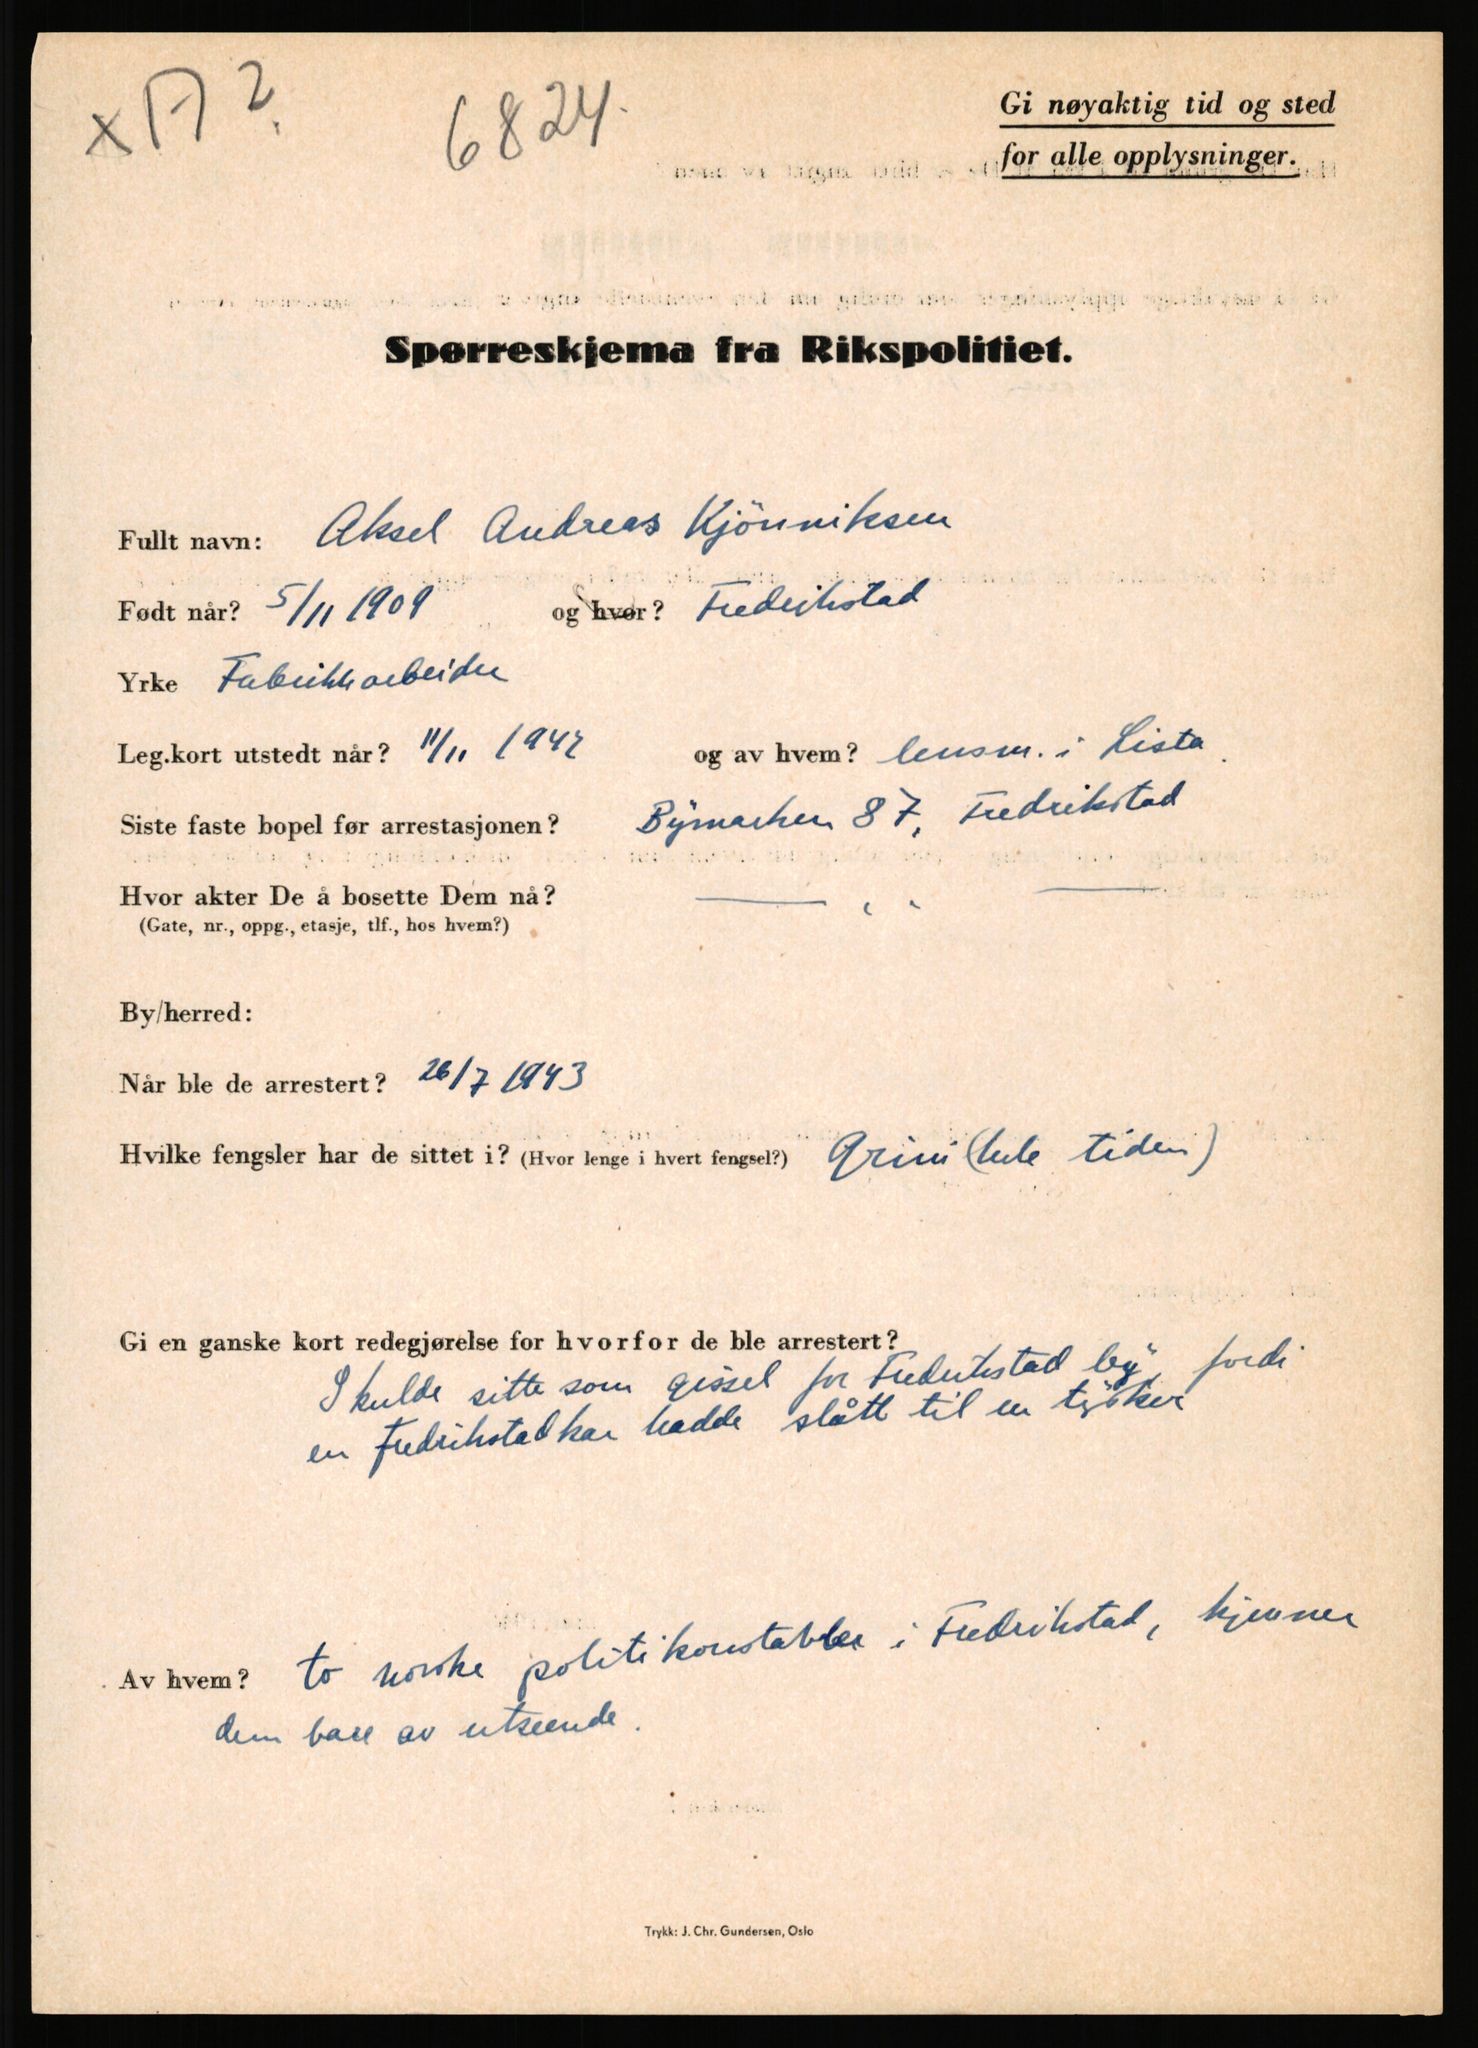 x A ?
6824.
Gi nøyaktig tid og sted
for alle opplysninger.
Spørreskjema fra Rikspolitiet.
Fullt navn: Aksel Andreas Kjönniksen
Født når? 5/11 1909 og hvor? Fredrikstad
Yrke Fabrikkarbeider
Leg.kort utstedt når? 11/11 1942 og av hvem? lensm. i Lista.
Siste faste bopel før arrestasjonen? Bymarken 87, Fredrikstad
Hvor akter De å bosette Dem nå? — " —
(Gate, nr., oppg., etasje, tlf., hos hvem?)
By/herred:
Når ble de arrestert? 26/7 1943
Hvilke fengsler har de sittet i? (Hvor lenge i hvert fengsel?) Grini (hele tiden)
Gi en ganske kort redegjørelse for hvorfor de ble arrestert?
Skulde sitte som gissel for Fredrikstad by, fordi
en fredrikstadkar hadde slått til en tysker
Av hvem? to norske politikonstabler i Fredrikstad, kjenner
dem bare av utseende.
Trykk: J. Chr. Gundersen, Oslo